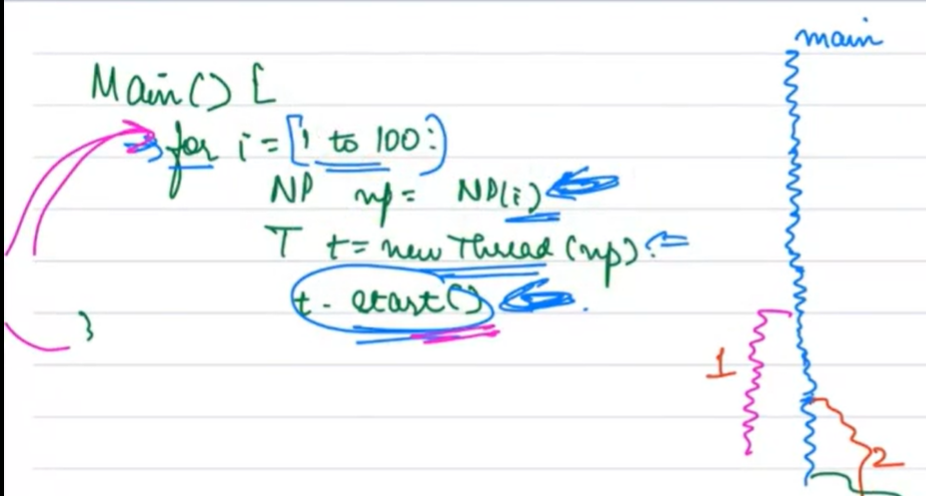 main
Main() [
for i = [1 to 100:)
NP np = NP(i)
T t = new Thread (np)
t. start()
}
1
2